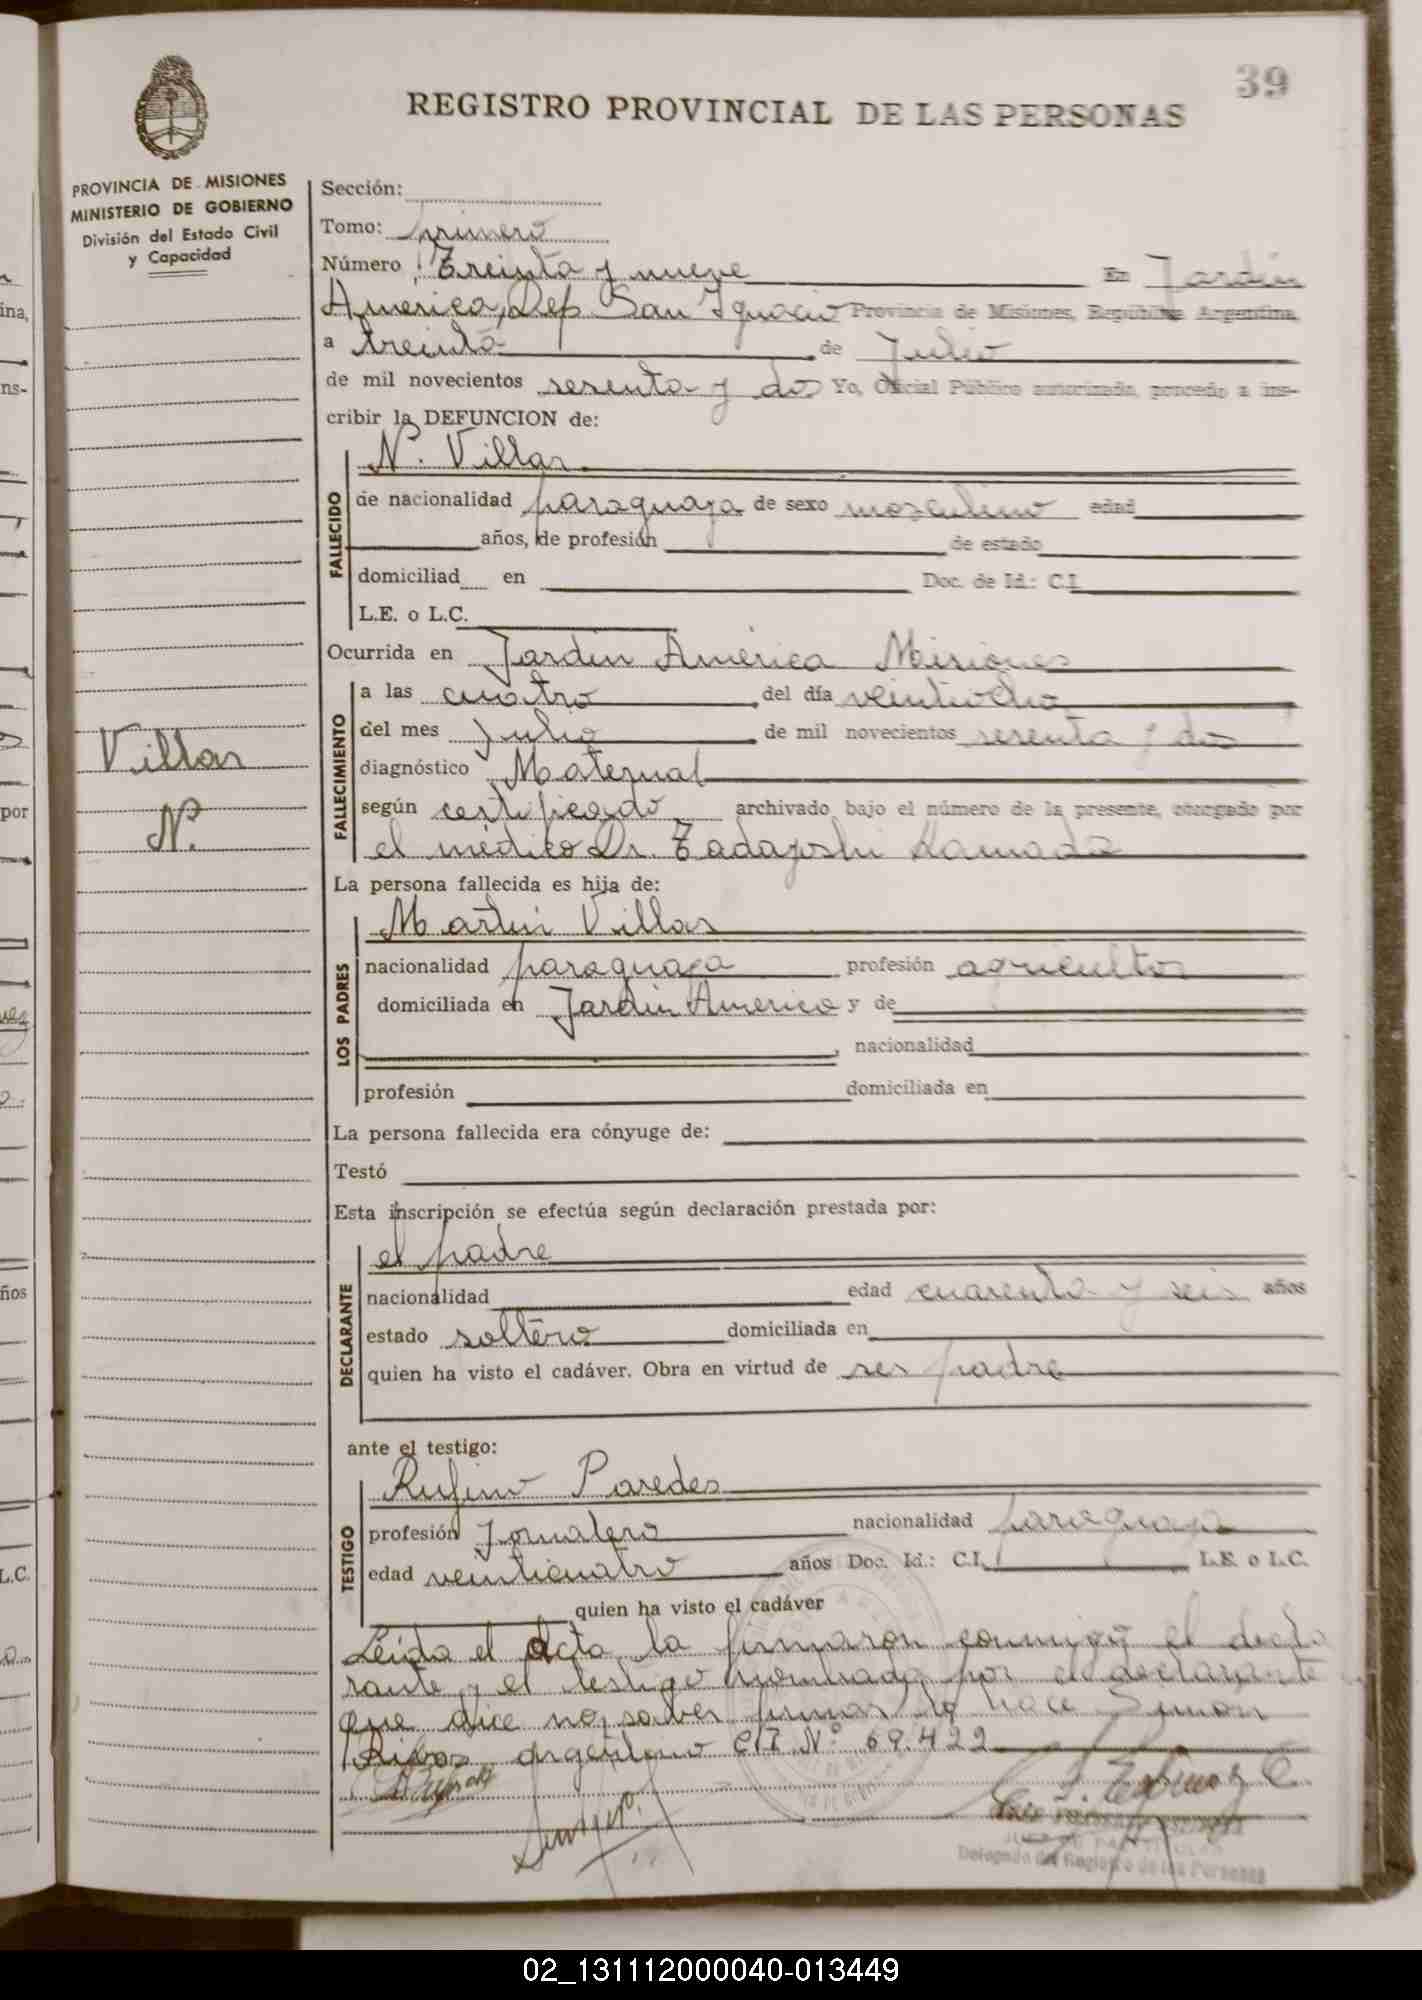 39
REGISTRO PROVINCIAL DE LAS PERSONAS
PROVINCIA DE MISIONES
MINISTERIO DE GOBIERNO
División del Estado Civil
y Capacidad
Villar
N.
Sección:
Tomo: primero
Número Treinta y nueve En Jardín
America, Dep. San Ignacio Provincia de Misiones, República Argentina,
a treinta de Julio
de mil novecientos sesenta y dos Yo, Oficial Público autorizado, procedo a ins-
cribir la DEFUNCION de:
FALLECIDO
N. Villar
de nacionalidad paraguaya de sexo masculino edad
años, de profesión de estado
domiciliad en Doc. de Id.: C.I.
L.E. o L.C.
Ocurrida en Jardín América Misiones
FALLECIMIENTO
a las cuatro del día veintiocho
del mes Julio de mil novecientos sesenta y dos
diagnóstico Maternal
según certificado archivado bajo el número de la presente, otorgado por
el médico Dr. Tadayoshi Kamada
La persona fallecida es hija de:
LOS PADRES
Martín Villar
nacionalidad paraguaya profesión agricultor
domiciliada en Jardín America y de
, nacionalidad
profesión domiciliada en
La persona fallecida era cónyuge de:
Testó
Esta inscripción se efectúa según declaración prestada por:
DECLARANTE
el padre
nacionalidad edad cuarenta y seis años
estado soltero domiciliada en
quien ha visto el cadáver. Obra en virtud de ser padre
ante el testigo:
TESTIGO
Rufino Paredes
profesión Jornalero nacionalidad paraguaya
edad veinticuatro años Doc. Id.: C.I. L.E. o L.C.
quien ha visto el cadáver
Leída el Acta, la firmaron conmigo el decla
rante y el testigo nombrado por el declarante
que dice no saber firmar lo hace Simon
Rivas argentino C.I. Nº 69.422
Delegado del Registro de las Personas
02_131112000040-013449